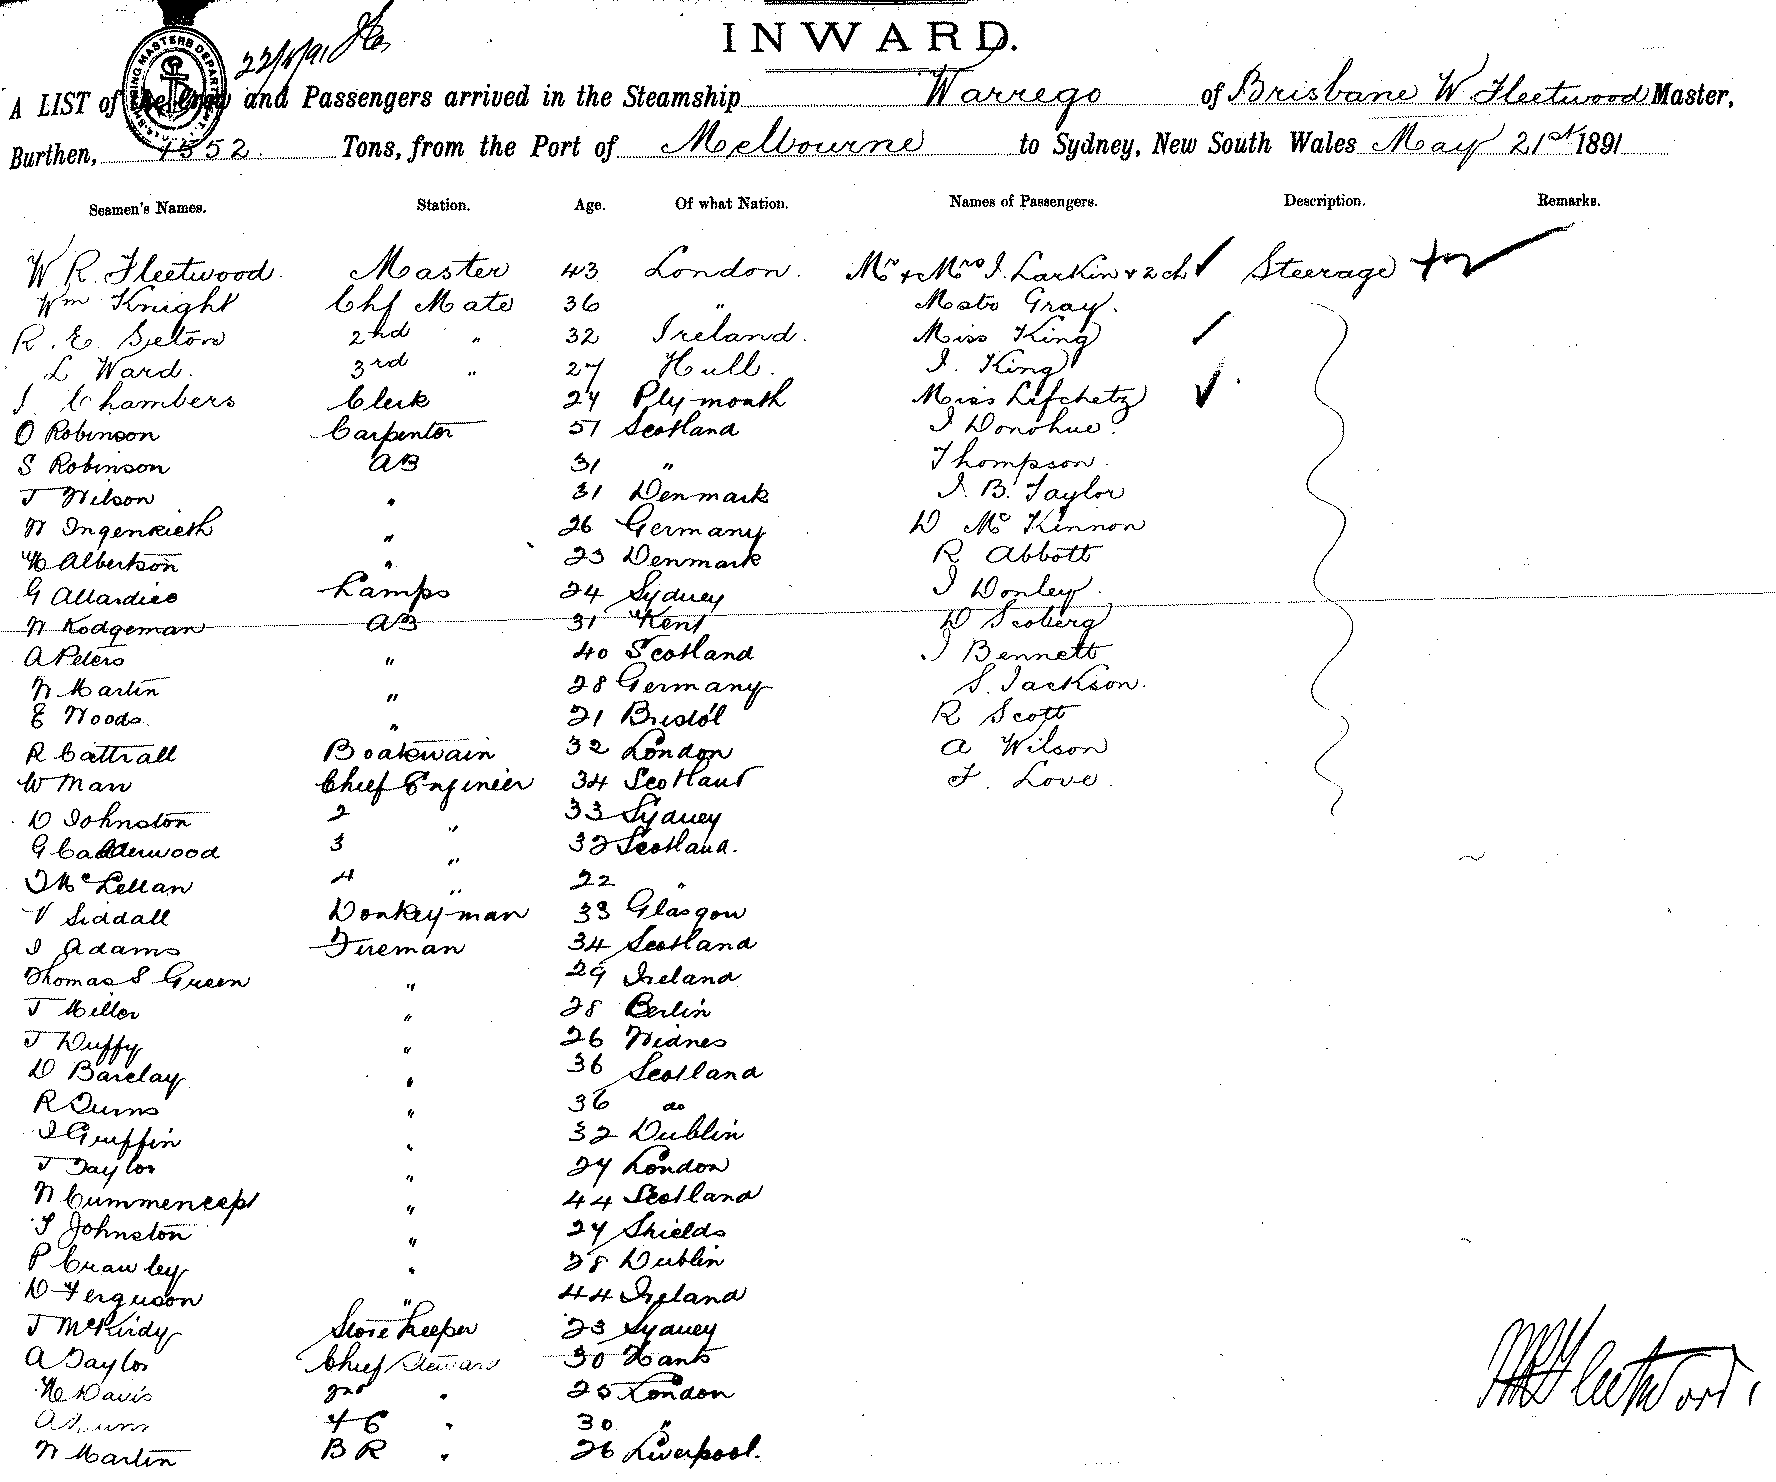 INWARD.
22/5/91
A LIST of the Crew and Passengers arrived in the Steamship Warrego of Brisbane W Fleetwood Master,
Burthen, 1552. Tons, from the Port of Melbourne to Sydney, New South Wales May 21st 1891
Seamen's Names. Station. Age. Of what Nation. Names of Passengers. Description. Remarks.
W R. Fleetwood. Master 43 London. Mr & Mrs J. Larkin & 2 ch Steerage
Wm Knight Chf Mate 36 " Mstr Gray.
R. E. Seton 2nd " 32 Ireland. Miss King
L Ward. 3rd " 27 Hull. J. King
J. Chambers Clerk 27 Plymouth Miss Lefchetz
O Robinson Carpenter 51 Scotland J Donohue.
S Robinson AB 31 " Thompson.
T Wilson " 31 Denmark J. B. Taylor
W " 26 Germany D McKinnon
H Albertson " 23 Denmark R Abbott
G Allardice Lamps 24 Sydney J Donley.
W Kodgeman AB 31 Kent D Scoberg
A Peters " 40 Scotland J Bennett
W Martin " 28 Germany S. Jackson.
E Woods. " 21 Bristol R Scott
R Cattrall Boatswain 32 London A Wilson
W Man Chief Engineer 34 Scotland F. Love.
D Johnston 2 " 33 Sydney
G Calderwood 3 " 32 Scotland.
J McLellan 4 " 22 "
V Siddall Donkeyman 33 Glasgow
J Adams Fireman 34 Scotland
Thomas S Green " 29 Ireland
T Miller " 28 Berlin
T Duffy " 26 Widnes
D Barclay " 36 Scotland
R " 36 do
J Griffin " 32 Dublin
T Taylor " 27 London
W " 44 Scotland
S Johnston " 27 Shields
P Crawley " 28 Dublin
D Ferguson " 44 Ireland
T McKirdy Storekeeper 23 Sydney
A Taylor Chief Steward 30 Hants
H Davis 2nd " 25 London
A 30 "
W Martin B R " 26 Liverpool.
W R Fleetwood.